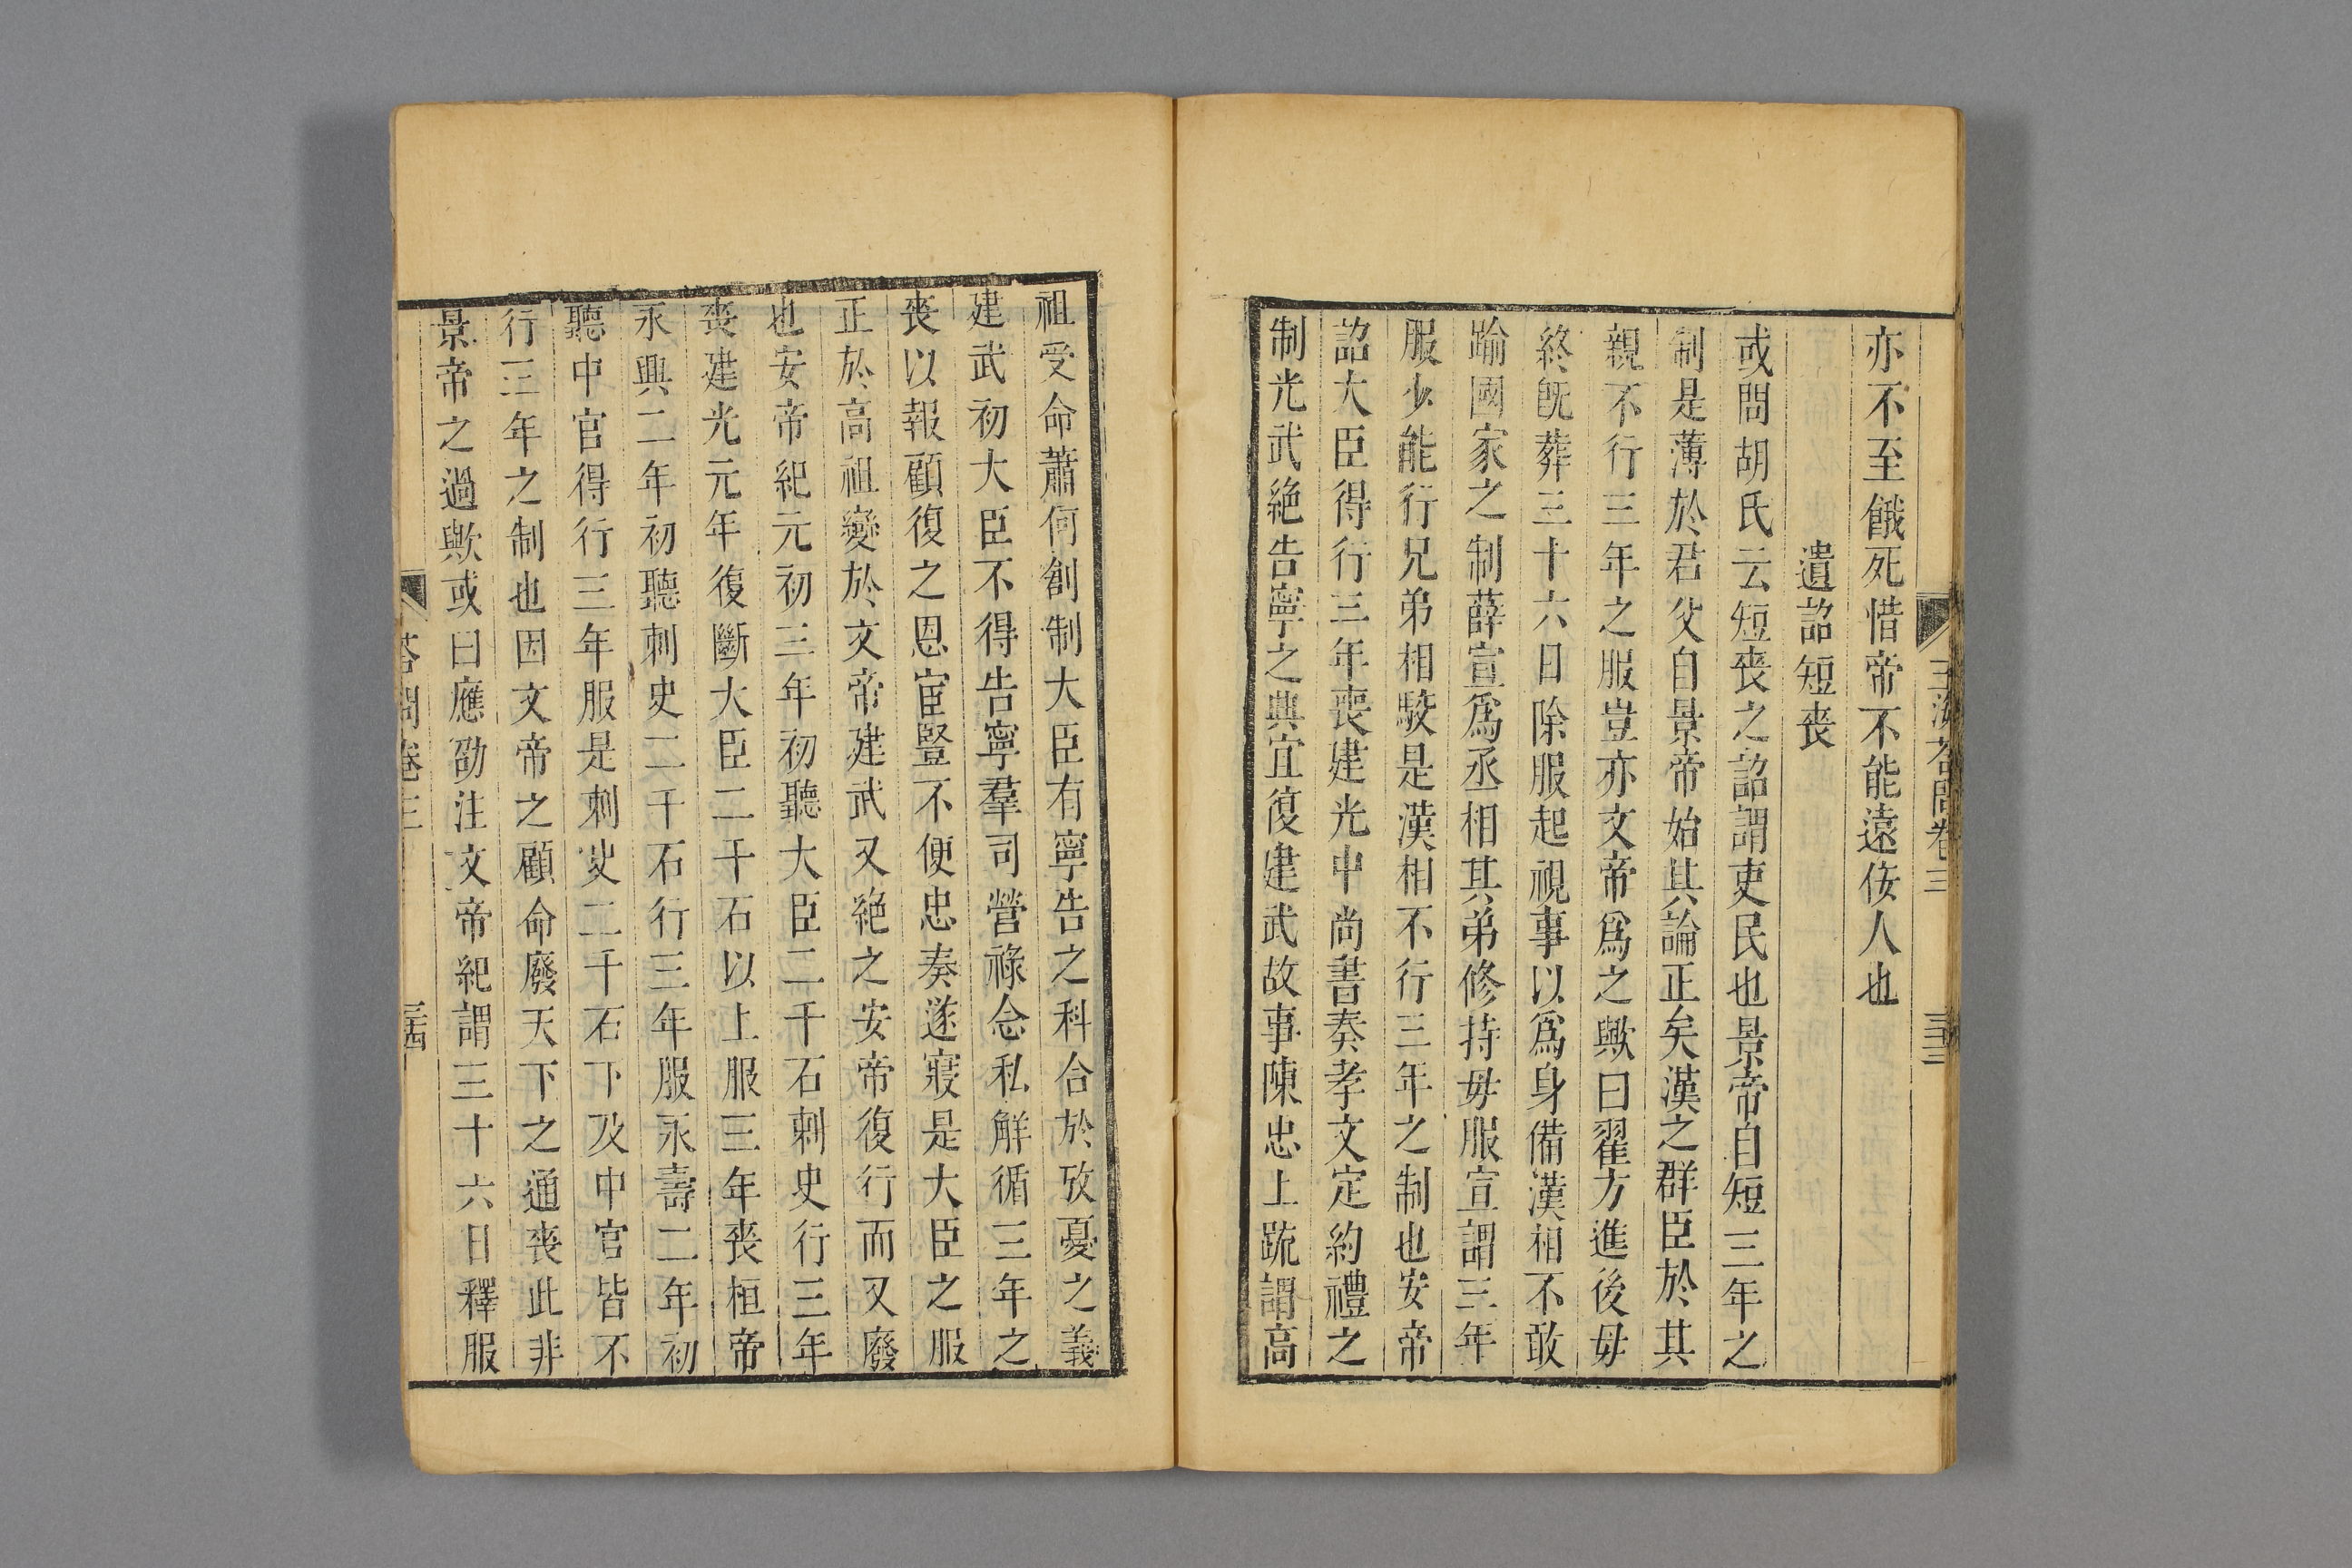 亦不至餓死惜帝不能遠佞人也
遺詔短喪
或問胡氏云短喪之詔謂吏民也景帝自短三年之
制是薄於君父自景帝始其論正矣漢之群臣於其
親不行三年之服豈亦文帝爲之歟曰翟方進後毋
終旣葬三十六日除服起視事以爲身備漢相不敢
踰國家之制薛宣爲丞相其弟修持毋服宣謂三年
服少能行兄弟相駮是漢相不行三年之制也安帝
詔大臣得行三年喪建光中尚書奏孝文定約禮之
制光武絶告寧之典宜復建武故事陳忠上疏謂高
祖受命蕭何創制大臣有寧告之科合於致憂之義
建武初大臣不得告寧羣司營祿念私鮮循三年之
喪以報顧復之恩宦豎不便忠奏遂寢是大臣之服
正於高祖變於文帝建武又絶之安帝復行而又廢
也安帝紀元初三年初聽大臣二千石刺史行三年
喪建光元年復斷大臣二千石以上服三年喪桓帝
永興二年初聽刺史二千石行三年服永壽二年初
聽中官得行三年服是刺史二千石下及中官皆不
行三年之制也因文帝之顧命廢天下之通喪此非
景帝之過歟或曰應劭注文帝紀謂三十六日釋服
答問卷三